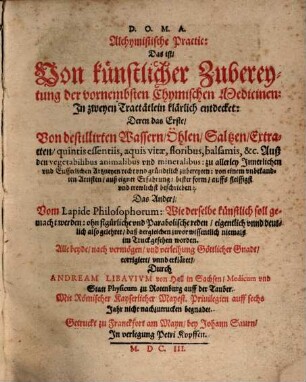 D. O. M. A.
Alchymistische Practic:
Das ist/
Von künstlicher Zuberey-
tung der vornembsten Chymischen Medicinen:
In zweyen Tractätlein klärlich entdecket:
Deren das Erste/
Von destillirten Wassern/Öhlen/Saltzen/Extra-
cten/ quintis essentiis, aquis vitæ, floribus, balsamis, &c. Auß
den vegetabilibus animalibus vnd mineralibus: zu allerley Innerlichen
vnd Eusserlichen Artzneyen recht vnd gründtlich zubereyten: von einem vnbekand-
ten Artisten/ auß eigner Erfahrung/ bester form/ auffs fleissigst
vnd trewlichst beschrieben;
Das Ander/
Vom Lapide Philosophorum: Wie derselbe künstlich soll ge-
macht werden: ohn figürliche vnd Parabolische reden / eigentlich vnnd deut-
lich also gelehret/ daß dergleichen zuvor wissentlich niemals
im Truck gesehen worden.
Alle beyde/ nach vermögen/ vnd verleihung Göttlicher Gnade/
corrigiert/ vnnd erkläret/
Durch
ANDREAM LIBAVIVM von Hall in Sachsen/ Medicum vnd
Statt Physicum zu Rotenburg auff der Tauber.
Mit Römischer Kayserlicher Mayest. Privilegien auff sechs
Jahr nicht nachzutrucken begnadet.
Getruckt zu Franckfort am Mayn/ bey Johann Saurn/
In verlegung Petri Kopffen.
M. DC. III.